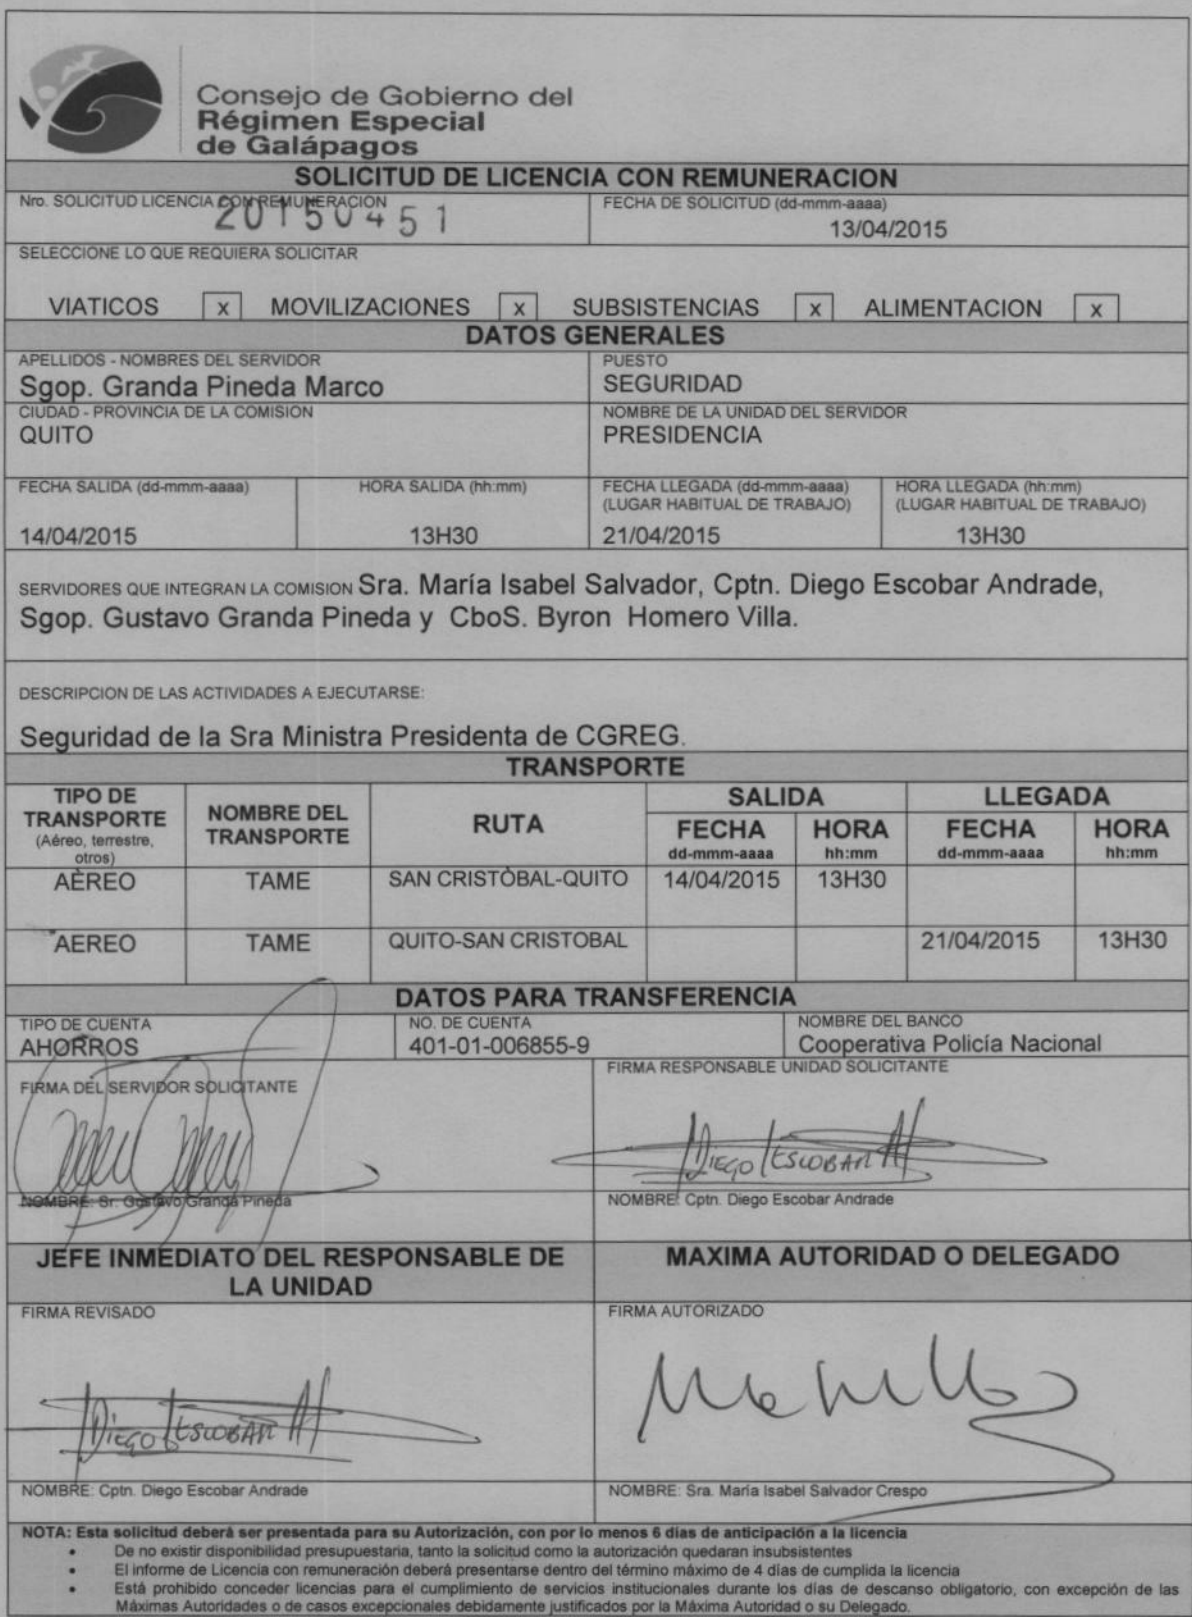 Consejo de Gobierno del
Régimen Especial
de Galápagos
SOLICITUD DE LICENCIA CON REMUNERACION
Nro. SOLICITUD LICENCIA CON REMUNERACION
20150451
FECHA DE SOLICITUD (dd-mmm-aaaa)
13/04/2015
SELECCIONE LO QUE REQUIERA SOLICITAR
VIATICOS x MOVILIZACIONES x SUBSISTENCIAS x ALIMENTACION x
DATOS GENERALES
APELLIDOS - NOMBRES DEL SERVIDOR
Sgop. Granda Pineda Marco
PUESTO
SEGURIDAD
CIUDAD - PROVINCIA DE LA COMISION
QUITO
NOMBRE DE LA UNIDAD DEL SERVIDOR
PRESIDENCIA
FECHA SALIDA (dd-mmm-aaaa)
14/04/2015
HORA SALIDA (hh:mm)
13H30
FECHA LLEGADA (dd-mmm-aaaa)
(LUGAR HABITUAL DE TRABAJO)
21/04/2015
HORA LLEGADA (hh:mm)
(LUGAR HABITUAL DE TRABAJO)
13H30
SERVIDORES QUE INTEGRAN LA COMISION Sra. María Isabel Salvador, Cptn. Diego Escobar Andrade,
Sgop. Gustavo Granda Pineda y CboS. Byron Homero Villa.
DESCRIPCION DE LAS ACTIVIDADES A EJECUTARSE:
Seguridad de la Sra Ministra Presidenta de CGREG.
TRANSPORTE
TIPO DE
TRANSPORTE
(Aéreo, terrestre,
otros)
NOMBRE DEL
TRANSPORTE
RUTA
SALIDA
LLEGADA
FECHA
dd-mmm-aaaa
HORA
hh:mm
FECHA
dd-mmm-aaaa
HORA
hh:mm
AÈREO TAME SAN CRISTÒBAL-QUITO 14/04/2015 13H30
AEREO TAME QUITO-SAN CRISTOBAL 21/04/2015 13H30
DATOS PARA TRANSFERENCIA
TIPO DE CUENTA
AHORROS
NO. DE CUENTA
401-01-006855-9
NOMBRE DEL BANCO
Cooperativa Policía Nacional
FIRMA DEL SERVIDOR SOLICITANTE
NOMBRE: Sr. Gustavo Granda Pineda
FIRMA RESPONSABLE UNIDAD SOLICITANTE
DIEGO ESCOBAR A
NOMBRE: Cptn. Diego Escobar Andrade
JEFE INMEDIATO DEL RESPONSABLE DE
LA UNIDAD
MAXIMA AUTORIDAD O DELEGADO
FIRMA REVISADO
DIEGO ESCOBAR A
NOMBRE: Cptn. Diego Escobar Andrade
FIRMA AUTORIZADO
NOMBRE: Sra. María Isabel Salvador Crespo
NOTA: Esta solicitud deberá ser presentada para su Autorización, con por lo menos 6 días de anticipación a la licencia
• De no existir disponibilidad presupuestaria, tanto la solicitud como la autorización quedaran insubsistentes
• El informe de Licencia con remuneración deberá presentarse dentro del término máximo de 4 días de cumplida la licencia
• Está prohibido conceder licencias para el cumplimiento de servicios institucionales durante los días de descanso obligatorio, con excepción de las
Máximas Autoridades o de casos excepcionales debidamente justificados por la Máxima Autoridad o su Delegado.